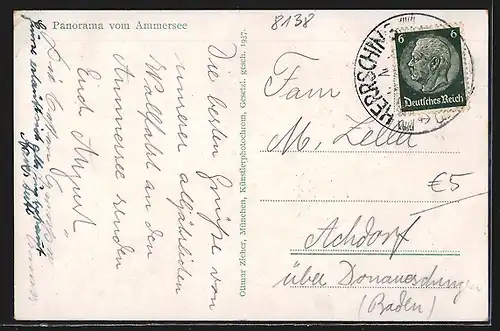 Panorama vom Ammersee
8138
Die besten Grüße von
unserer alljährlichen
Wallfahrt an den
Ammersee senden
Euch August
Ottmar Zieher, München, Künstlerphotochrom, Gesetzl. gesch. 1937.
HERRSCHING
6 6
Deutsches Reich
Fam
M. Zeller
€5
Achdorf
über Donaueschingen
(Baden)